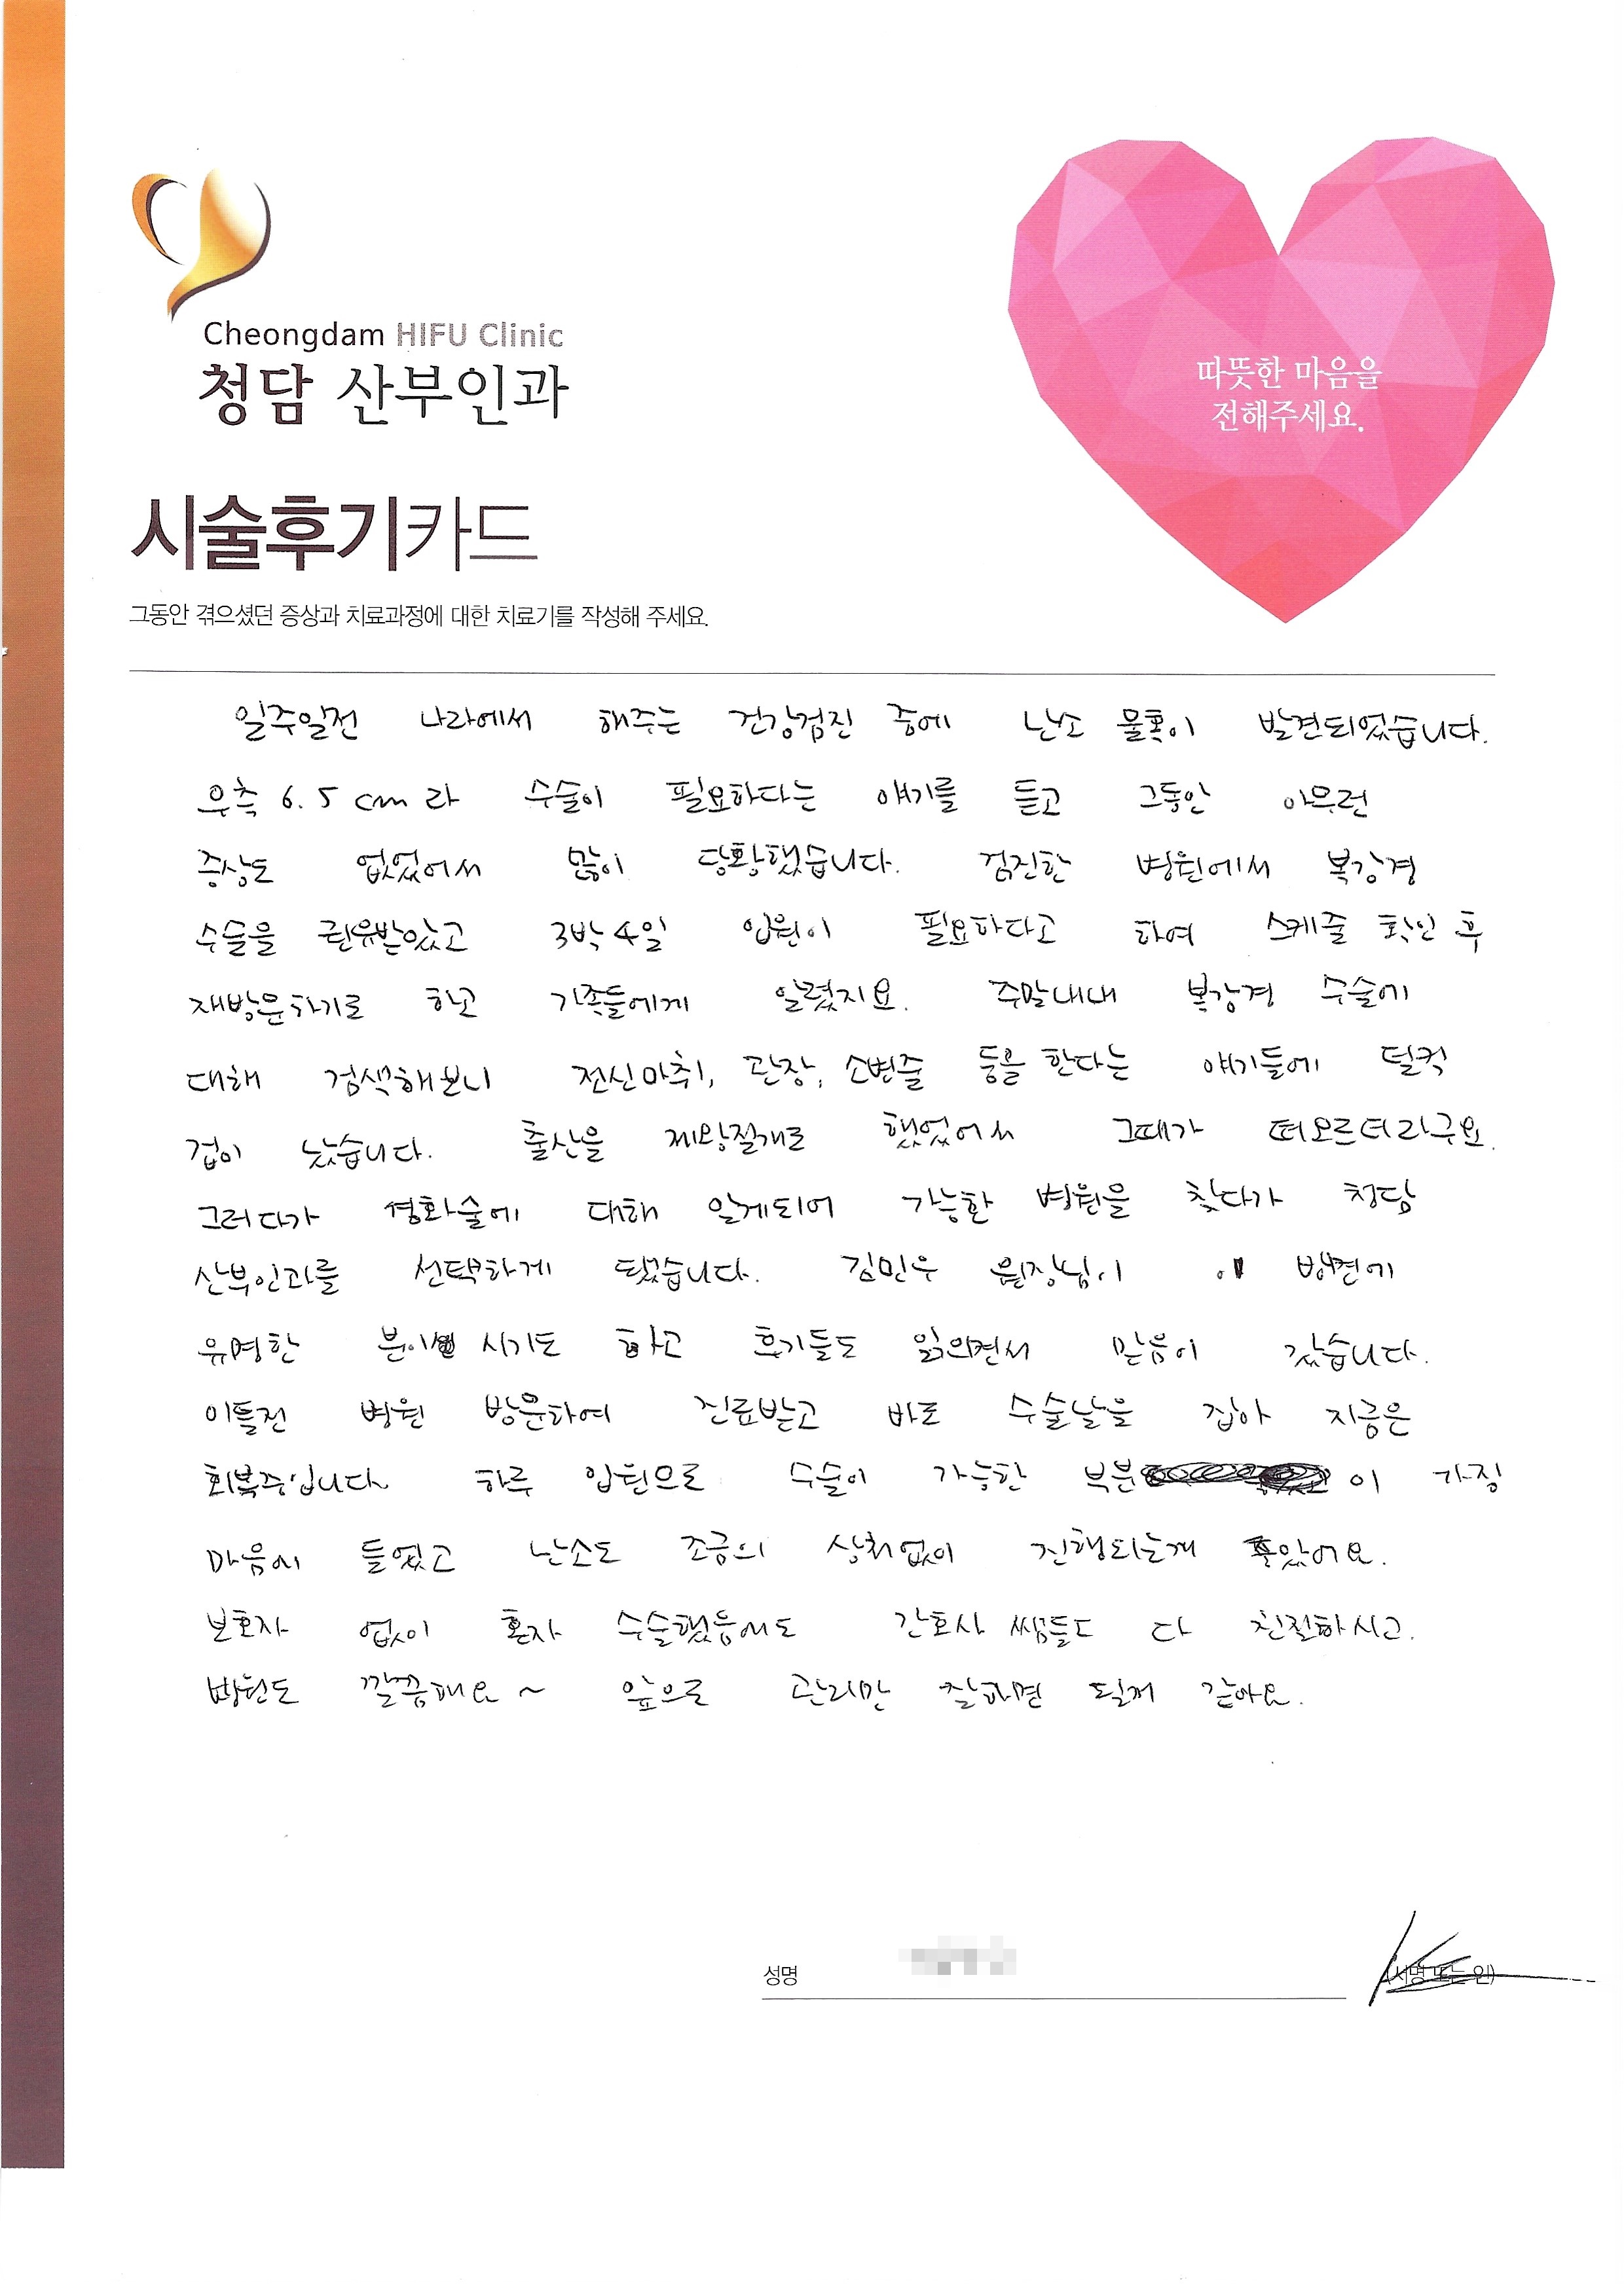 Cheongdam HIFU Clinic
청담 산부인과
따뜻한 마음을
전해주세요.
시술후기카드
그동안 겪으셨던 증상과 치료과정에 대한 치료기를 작성해 주세요.
일주일전 나라에서 해주는 건강검진 중에 난소 물혹이 발견되었습니다.
우측 6.5cm라 수술이 필요하다는 얘기를 듣고 그동안 아무런
증상도 없었어서 많이 당황했습니다. 검진한 병원에서 복강경
수술을 권유받았고 3박4일 입원이 필요하다고 하여 스케줄 확인 후
재방문하기로 하고 가족들에게 알렸지요. 주말내내 복강경 수술에
대해 검색해보니 전신마취, 관장, 소변줄 등을 한다는 얘기들에 덜컥
겁이 났습니다. 출산을 제왕절개로 했었어서 그때가 떠오르더라구요.
그러다가 경화술에 대해 알게되어 가능한 병원을 찾다가 청담
산부인과를 선택하게 됐습니다. 김민우 원장님이 이 방면에
유명한 분이시기도 하고 후기들도 읽으면서 믿음이 갔습니다.
이틀전 병원 방문하여 진료받고 바로 수술날을 잡아 지금은
회복중입니다. 하루 입원으로 수술이 가능한 부분이 가장
마음에 들었고 난소도 조금의 상처없이 진행되는게 좋았어요.
보호자 없이 혼자 수술했음에도 간호사 쌤들도 다 친절하시고.
병원도 깔끔해요~ 앞으로 관리만 잘하면 될꺼 같아요.
성명 (서명 또는 인)